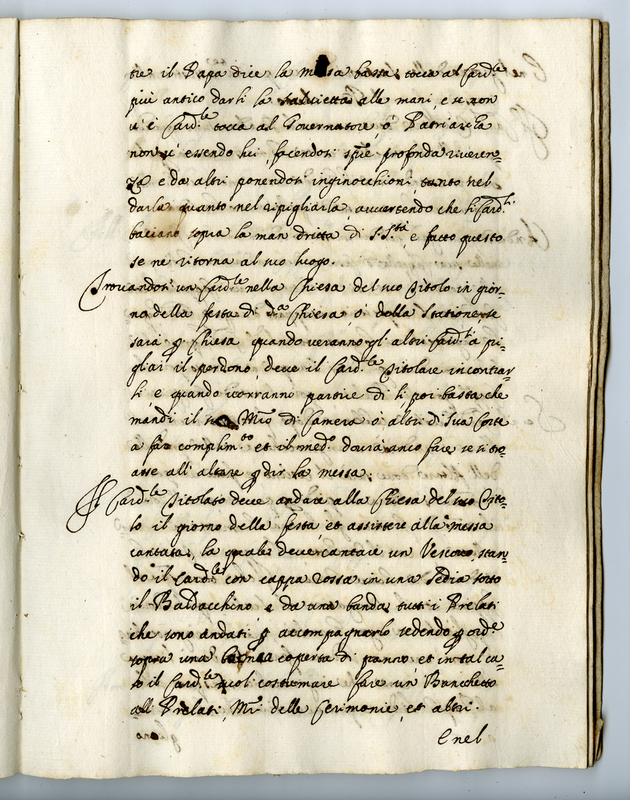 tre il Papa dice la messa bassa, tocca al Card.le
più antico darli la salvietta alle mani, e se non
v'è Card.le tocca al Governatore, ò Patriarcha
non vi essendo lui, facendosi profonda riveren=
za e da altri ponendosi inginocchioni tanto nel
darla quanto nel ripigliarla avvertendo che li Card.li
baciano sopra la man dritta di S. S.tà e fatto questo
se ne ritorna al suo luogo.
Trovandosi un Card.le nella Chiesa del suo Titolo in gior=
no della festa di d.a Chiesa, ò della Stazione se
sarà Chiesa quando veranno gl'altri Card.li a pi=
gliar il perdono, deve il Card.le Titolare incontrar=
li e quando vorranno partire di li poi basta che
mandi il suo Mro di Camera ò altri di Sua Corte
a far complim.to et il med.o dovrà anco fare se si tro=
asse all'altare p dir la messa.
Il Card.le Titolato deve andare alla Chiesa del suo Tito=
lo il giorno della festa, et assistere alla messa
cantata, la quale deve cantare un Vescovo, stan=
do il Card.le con cappa rossa in una Sedia sotto
il Baldacchino e da una banda tutti i Prelati
che sono andati p accompagnarlo sedendo p ord.e
sopra una banca coperta di panno et in tal ca=
so il Card.le suol costumare fare un Banchetto
all Prelati, Mri delle Cerimonie, et altri.
E nel